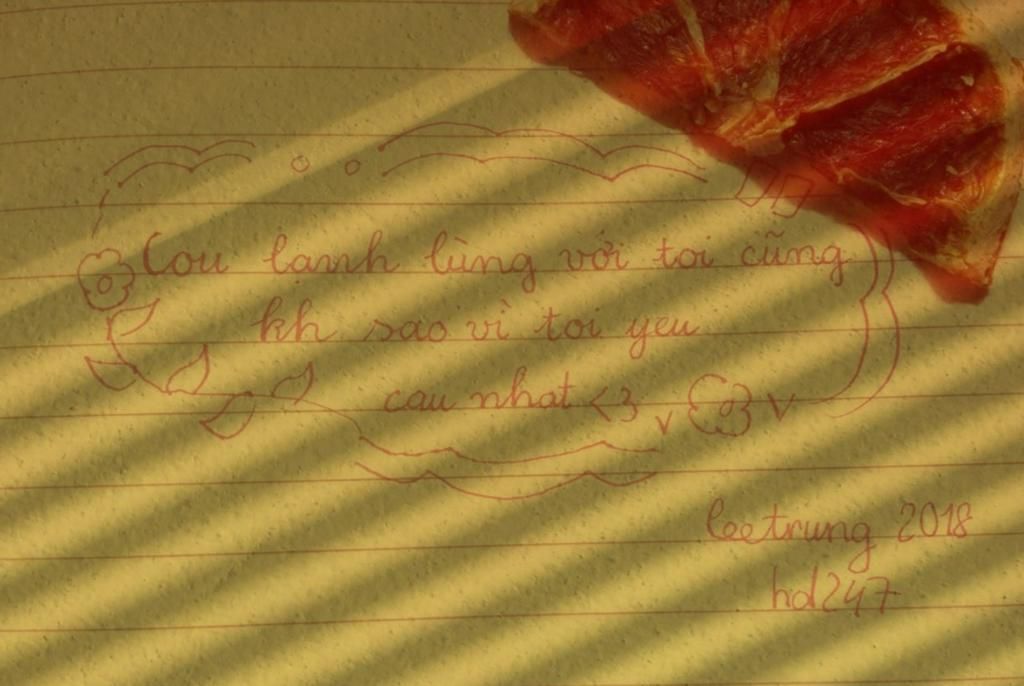 Cou lạnh lùng với toi cũng
kh sao vì toi yeu
cau nhat <3
leetrung 2018
hd247